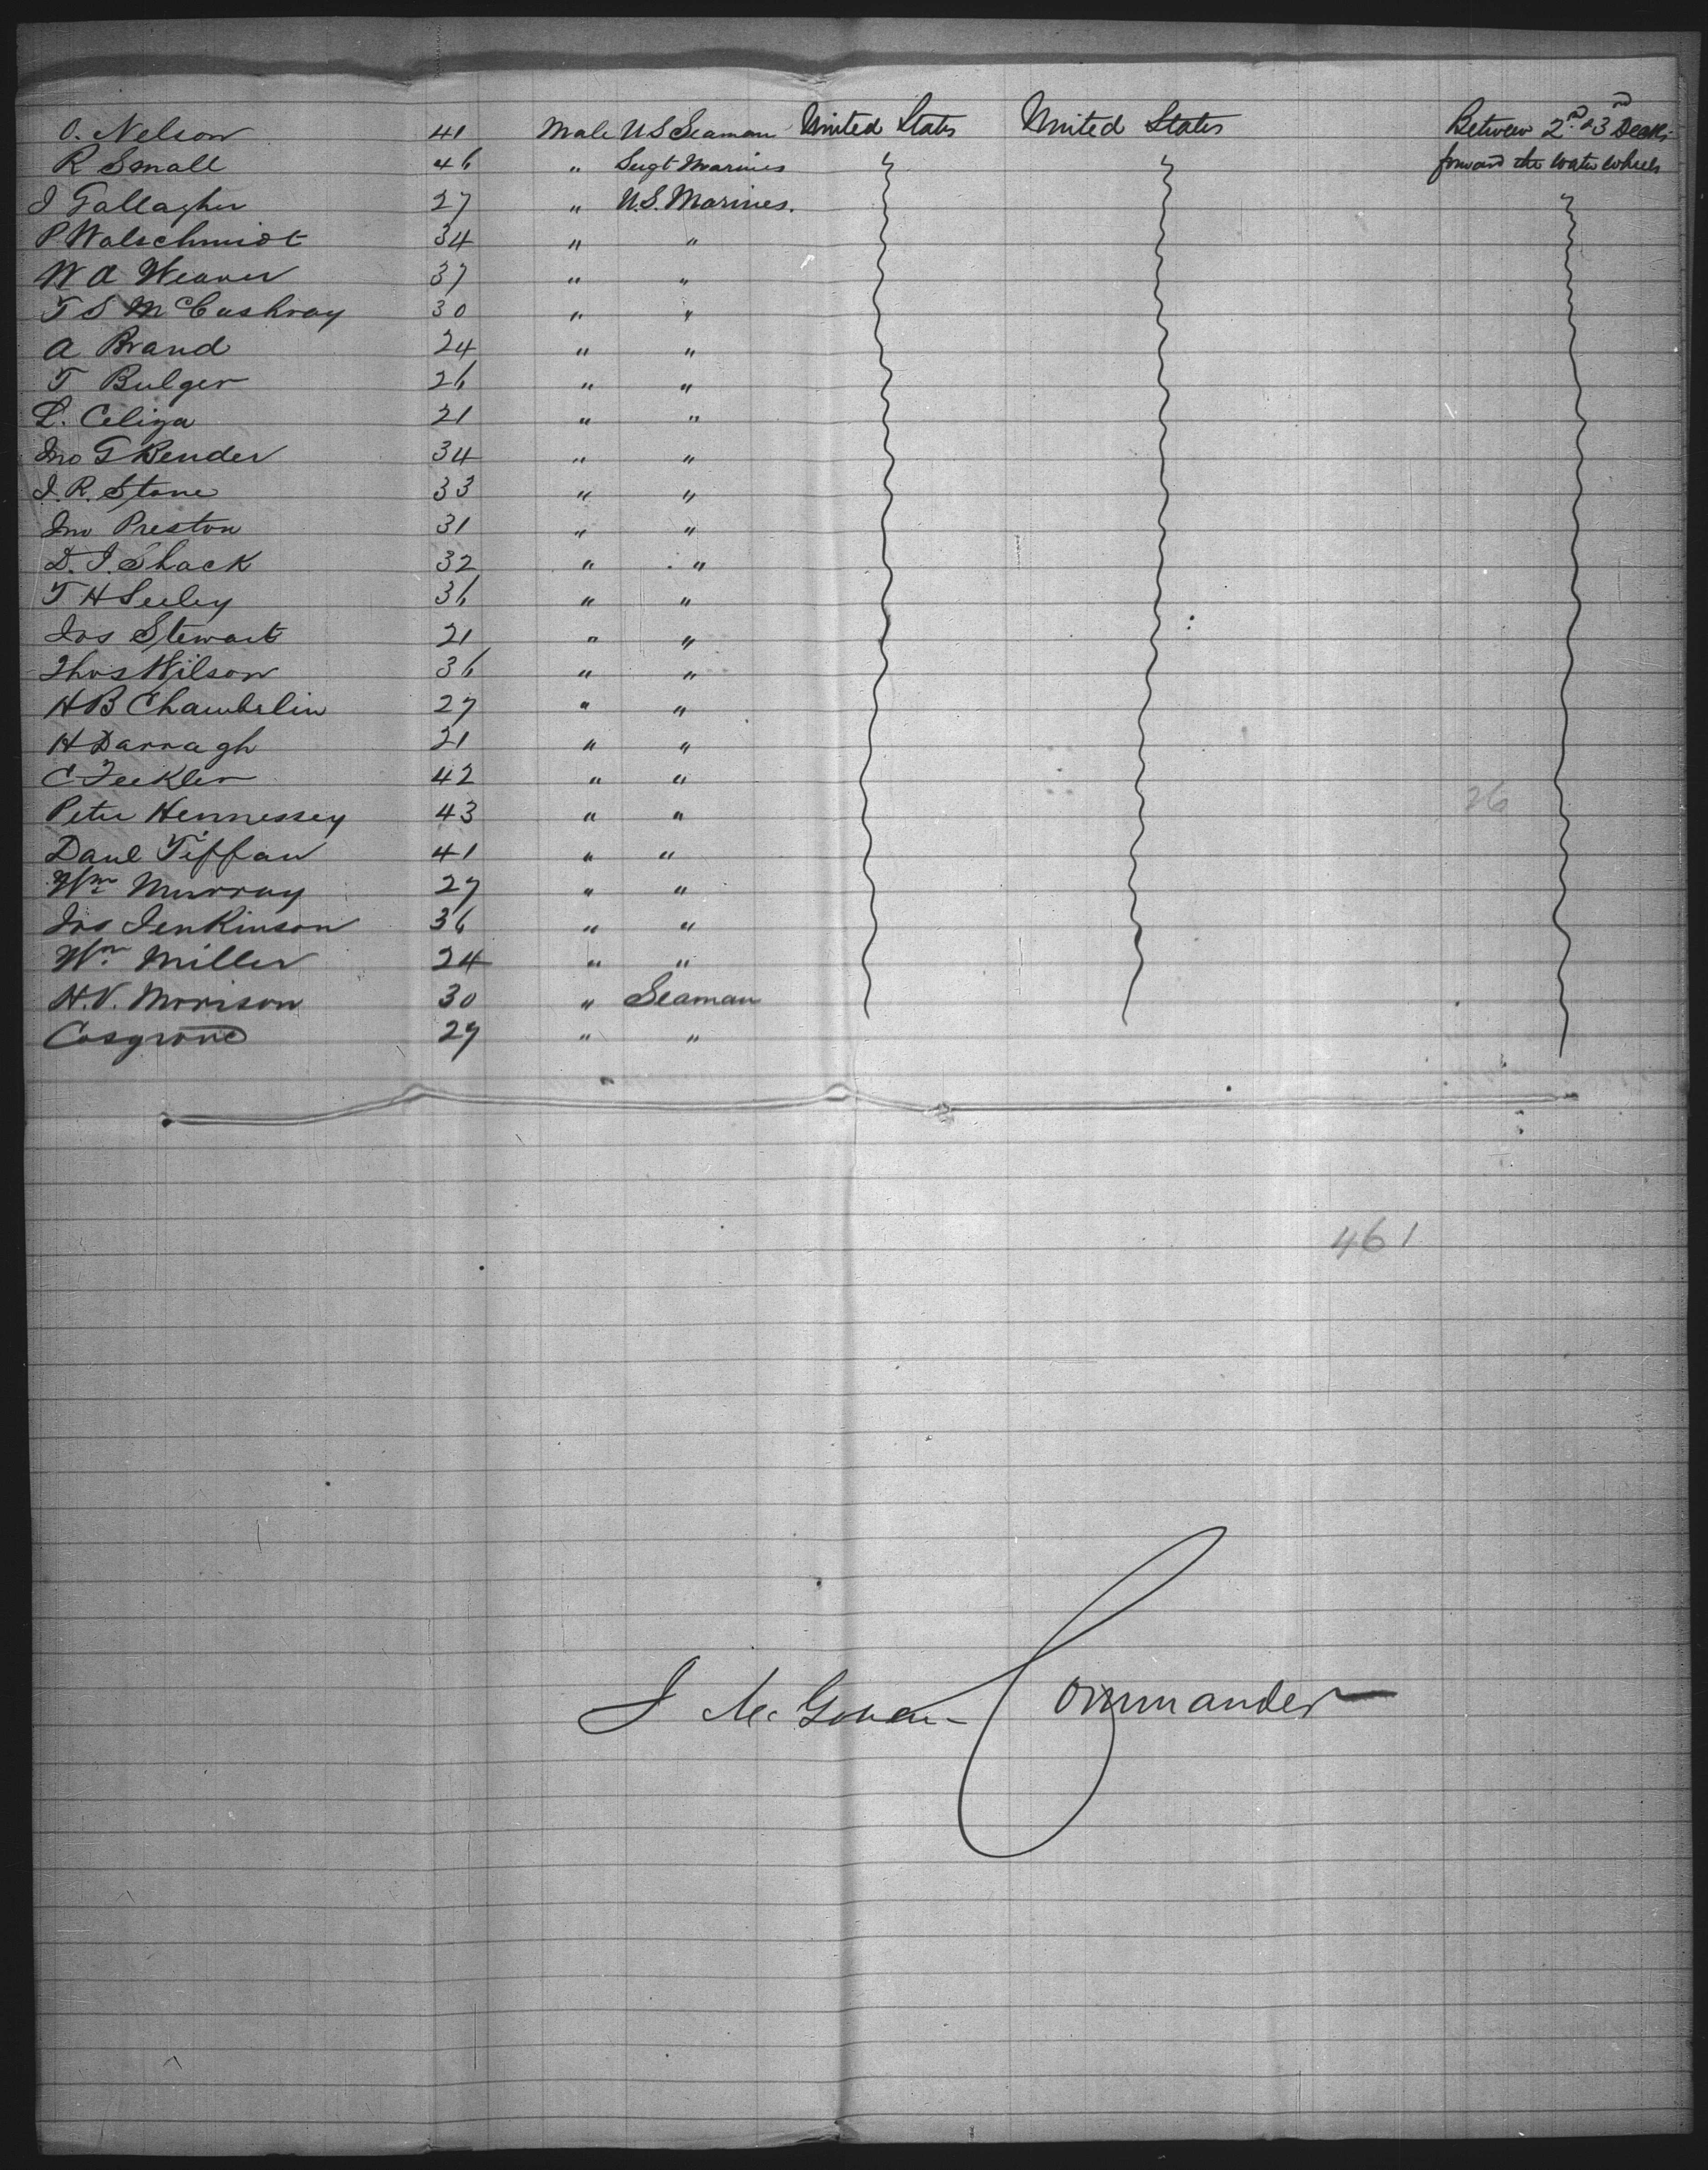 O. Nelson 41 Male U S Seaman United States United States Between 2nd & 3rd Decks
R Small 46 " Sergt Marines forward the water wheels
J Gallagher 27 " U.S. Marines.
P Walschmidt 34 " "
W A Weaver 37 " "
T S McCashray 30 " "
A Brand 24 " "
T Bulger 26 " "
L. Celiza 21 " "
Jno G Bender 34 " "
J. R. Stone 33 " "
Jno Preston 31 " "
D. J. Shack 32 " "
T H Seeley 36 " "
Jos Stewart 21 " "
Thos Wilson 36 " "
H B Chamberlin 27 " "
H Darragh 21 " "
C Feekler 42 " "
Peter Hennessey 43 " " 26
Danl Tiffan 41 " "
Wm Murray 27 " "
Jos Jenkinson 36 " "
Wm Miller 24 " "
H. V. Morrison 30 " Seaman
Cosgrove 27 " "
461
J McGowan - Commander